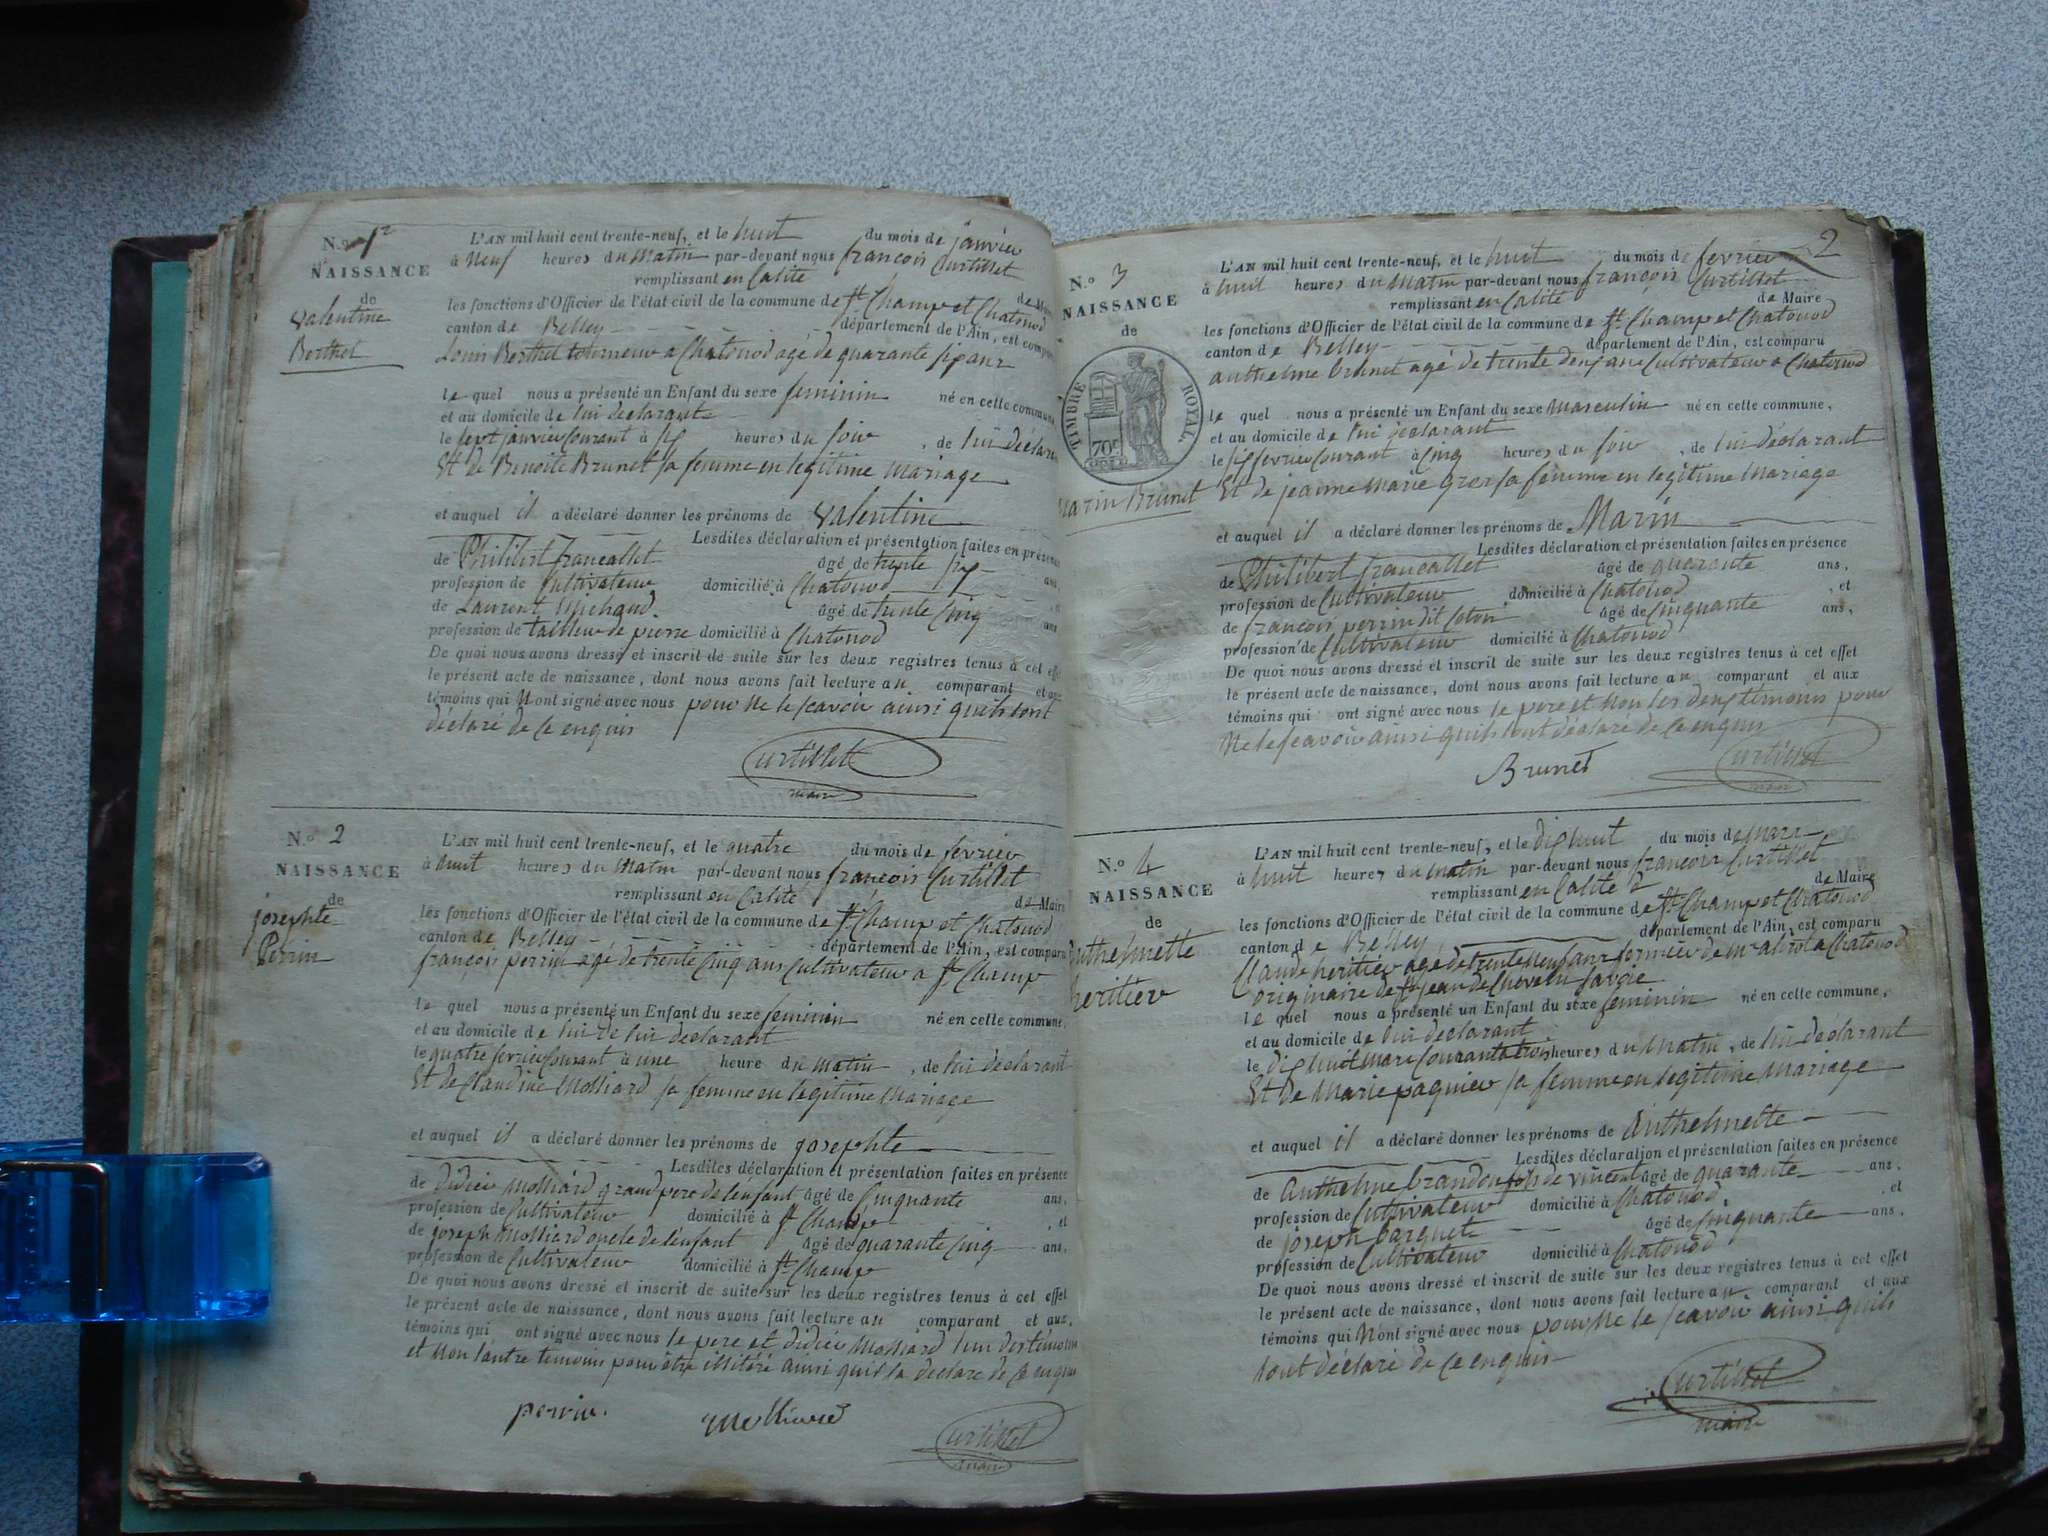 N.o 1er
NAISSANCE
de
Valentine
Berthet
L'AN mil huit cent trente-neuf, et le huit du mois de janvier
à Neuf heures du Matin par-devant nous françois Curtillet
remplissant en Calité de Maire
les fonctions d'Officier de l'état civil de la commune de St Champ et Chatonod
canton de Belley département de l'Ain, est comparu
Berthet tourneur a Chatonod agé de quarante six ans
le quel nous a présenté un Enfant du sexe feminin né en cette commune
et au domicile de lui declarant
le sept janvier Courant à six heures du soir, de lui déclarant
Et de Benoite Brunet sa femme en legitime Mariage
et auquel il a déclaré donner les prénoms de Valentine
Lesdites déclaration et présentation faites en présence
de Philibert francallet âgé de trente six ans
profession de Cultivateur domicilié à Chatonod
de Laurent âgé de trente Cinq ans
profession de tailleur de pierre domicilié à Chatonod
De quoi nous avons dressé et inscrit de suite sur les deux registres tenus à cet effet
le présent acte de naissance, dont nous avons fait lecture au comparant et aux
témoins qui Nont signé avec nous pour Ne le scavoir ainsi quils lont
déclaré de Ce enquis
Curtillet
maire
N.o 2
NAISSANCE
de
josephte
Perrin
L'AN mil huit cent trente-neuf, et le quatre du mois de fevrier
à huit heures du Matin par-devant nous françois Curtillet
remplissant en Calité de Maire
les fonctions d'Officier de l'état civil de la commune de St Champ et Chatonod
canton de Belley département de l'Ain, est comparu
françois perrin agé de trente Cinq ans Cultivateur a St Champ
le quel nous a présenté un Enfant du sexe feminin né en cette commune,
et au domicile de lui de lui declarant
le quatre fevrier Courant à une heure du Matin, de lui declarant
Et de Claudine Molliard sa femme en legitime Mariage
et auquel il a déclaré donner les prénoms de josephte
Lesdites déclaration et présentation faites en présence
de didier Molliard grand pere de lenfant âgé de Cinquante ans,
profession de Cultivateur domicilié à St Champ, et
de joseph Molliard oncle de lenfant âgé de quarante Cinq ans,
profession de Cultivateur domicilié à St Champ
De quoi nous avons dressé et inscrit de suite sur les deux registres tenus à cet effet
le présent acte de naissance, dont nous avons fait lecture au comparant et aux
témoins qui ont signé avec nous le pere et didier Molliard lun des temoins
et Non lautre temoin pour être illitéré ainsi quil la declare de Ce enquis
perrin.
Molliard
Curtillet
maire
2
N.o 3
NAISSANCE
de
TIMBRE ROYAL
70c
Marin Brunet
L'AN mil huit cent trente-neuf, et le huit du mois de fevrier
à huit heures du Matin par-devant nous françois Curtillet
remplissant en Calité de Maire
les fonctions d'Officier de l'état civil de la commune de St Champ et Chatonod
canton de Belley département de l'Ain, est comparu
anthelme brunet agé de trente deux ans Cultivateur a Chatonod
le quel nous a présenté un Enfant du sexe Masculin né en cette commune,
et au domicile de lui declarant
le six fevrier Courant à Cinq heures du soir, de lui déclarant
Et de jeanne Marie gros sa femme en legitime Mariage
et auquel il a déclaré donner les prénoms de Marin
Lesdites déclaration et présentation faites en présence
de Philibert francallet âgé de quarante ans,
profession de Cultivateur domicilié à Chatonod, et
de françois perrin dit âgé de Cinquante ans,
profession de Cultivateur domicilié à Chatonod
De quoi nous avons dressé et inscrit de suite sur les deux registres tenus à cet effet
le présent acte de naissance, dont nous avons fait lecture au comparant et aux
témoins qui ont signé avec nous le pere et Non les deux temoins pour
Ne le scavoir ainsi quils lont déclaré de Ce enquis
Brunet
Curtillet
maire
N.o 4
NAISSANCE
de
Anthelmette
heritier
L'AN mil huit cent trente-neuf, et le dix huit du mois de Mars
à huit heures du Matin par-devant nous françois Curtillet
remplissant en Calité de Maire
les fonctions d'Officier de l'état civil de la commune de St Champ et Chatonod
canton de Belley département de l'Ain, est comparu
Claude heritier agé de trente Neuf ans fermier de Mr a Chatonod
originaire de St jean de Chevelu Savoie
le quel nous a présenté un Enfant du sexe feminin né en cette commune,
et au domicile de lui declarant
le dix huit Mars Courant a trois heures du Matin, de lui déclarant
Et de Marie paquier sa femme en legitime Mariage
et auquel il a déclaré donner les prénoms de Anthelmette
Lesdites déclaration et présentation faites en présence
de Anthelme brandon fils de vincent âgé de quarante ans,
profession de Cultivateur domicilié à Chatonod, et
de joseph parquet âgé de Cinquante ans,
profession de Cultivateur domicilié à Chatonod
De quoi nous avons dressé et inscrit de suite sur les deux registres tenus à cet effet
le présent acte de naissance, dont nous avons fait lecture au comparant et aux
témoins qui Nont signé avec nous pour Ne le scavoir ainsi quils
lont déclaré de Ce enquis
Curtillet
maire